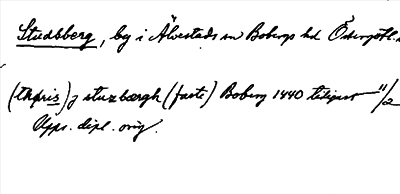 Studsberg, by i Älvestads sn Bobergs hd Östergötl.
(thøris) j stuzbærgh (faste) Boberg 1440 11/2
Upps. dipl. orig.